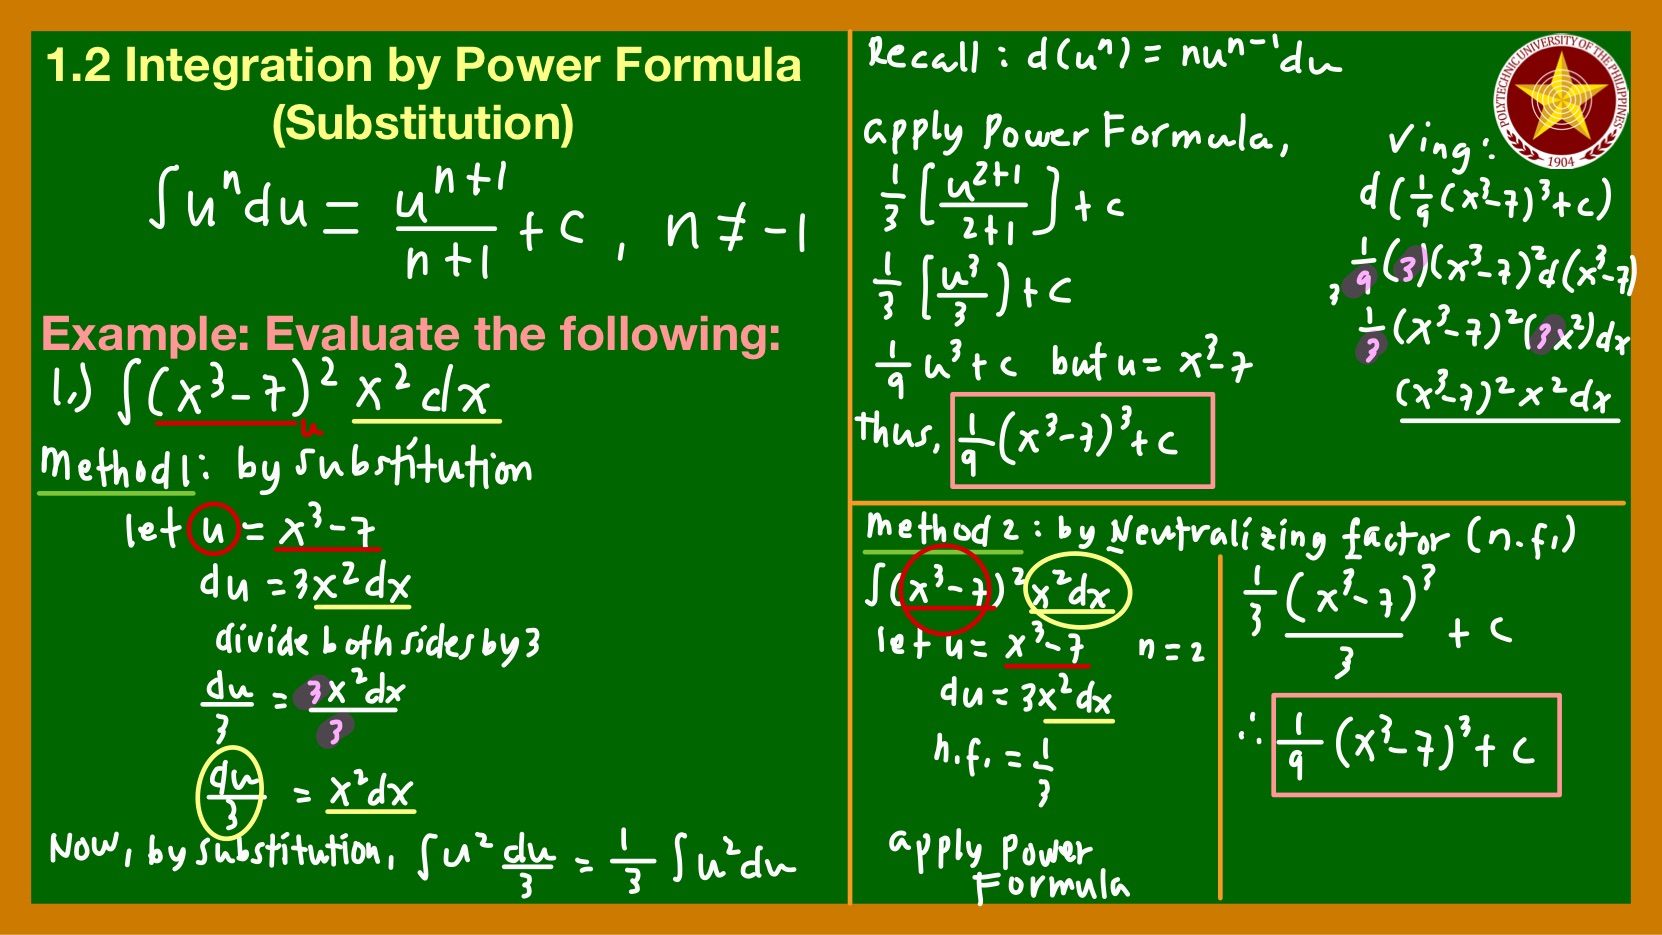 1.2 Integration by Power Formula
(Substitution)
∫uⁿdu = uⁿ⁺¹/n+1 + c, n ≠ -1
Example: Evaluate the following:
1.) ∫(x³-7)² x²dx
u
Method 1: by substitution
let u = x³-7
du = 3x²dx
divide both sides by 3
du/3 = 3x²dx/3
du/3 = x²dx
Now, by substitution, ∫u² du/3 = 1/3 ∫u²du
Recall: d(uⁿ) = nuⁿ⁻¹du
apply Power Formula,
1/3 [u²⁺¹/2+1] + c
1/3 [u³/3) + c
1/9 u³ + c but u = x³-7
thus, 1/9 (x³-7)³ + c
ving:
d(1/9 (x³-7)³ + c)
1/9 (3)(x³-7)²d(x³-7)
3
1/3 (x³-7)²(3x²)dx
(x³-7)²x²dx
POLYTECHNIC UNIVERSITY OF THE PHILIPPINES
1904
Method 2: by Neutralizing factor (n.f.)
∫(x³-7)²x²dx
let u = x³-7 n = 2
du = 3x²dx
n.f. = 1/3
apply Power
Formula
1/3 (x³-7)³/3 + c
∴ 1/9 (x³-7)³ + c